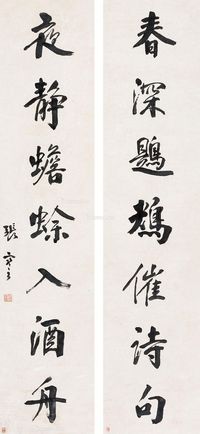 春深鶗鴂催詩句
夜靜蟾蜍入酒舟
張